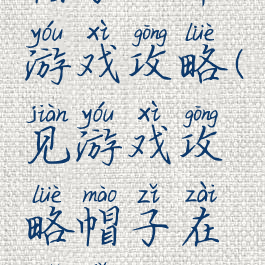 yóu xì gōng lüè
游戏攻略(
jiàn yóu xì gōng
见游戏攻
lüè mào zǐ zài
略帽子在